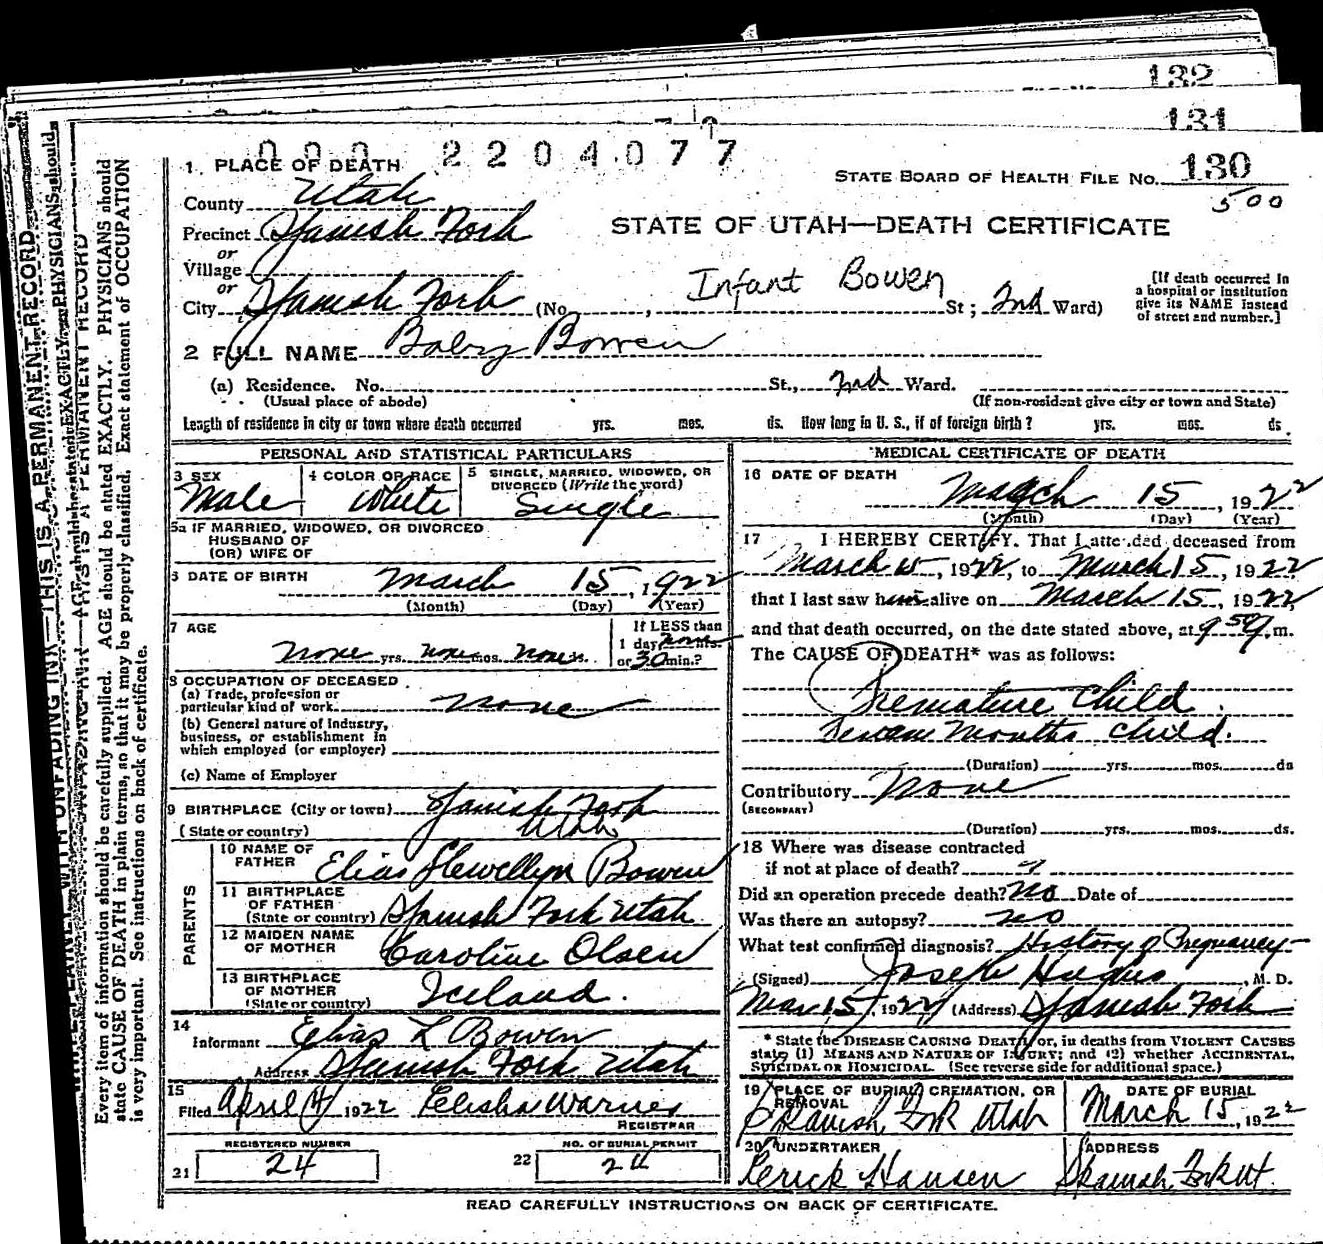 132
131
000 2204077
1. PLACE OF DEATH
STATE BOARD OF HEALTH FILE No. 130
500
County Utah
STATE OF UTAH—DEATH CERTIFICATE
Precinct Spanish Fork
or
Village
or
Infant Bowen
City Spanish Fork (No. , St; 2nd Ward)
[If death occurred in
a hospital or institution
give its NAME instead
of street and number.]
2 FULL NAME Baby Bowen
(a) Residence. No. St., 2nd Ward.
(Usual place of abode) (If non-resident give city or town and State)
Length of residence in city or town where death occurred yrs. mos. ds. How long in U. S., if of foreign birth? yrs. mos. ds.
PERSONAL AND STATISTICAL PARTICULARS
3 SEX
Male
4 COLOR OR RACE
White
5 SINGLE, MARRIED, WIDOWED, OR
DIVORCED (Write the word)
Single
5a IF MARRIED, WIDOWED, OR DIVORCED
HUSBAND OF
(OR) WIFE OF
6 DATE OF BIRTH March 15, 1922
(Month) (Day) (Year)
7 AGE
none yrs. none mos. none ds.
If LESS than
1 day none hrs.
or 30 min.?
8 OCCUPATION OF DECEASED
(a) Trade, profession or
particular kind of work none
(b) General nature of Industry,
business, or establishment in
which employed (or employer)
(c) Name of Employer
9 BIRTHPLACE (City or town) Spanish Fork
(State or country) Utah
PARENTS
10 NAME OF
FATHER Elias Llewellyn Bowen
11 BIRTHPLACE
OF FATHER
(State or country) Spanish Fork Utah
12 MAIDEN NAME
OF MOTHER Caroline Olsen
13 BIRTHPLACE
OF MOTHER
(State or country) Iceland.
14
Informant Elias L Bowen
Address Spanish Fork Utah
15
Filed April 4 1922 Elisha Warner
REGISTRAR
REGISTERED NUMBER
21 24
NO. OF BURIAL PERMIT
22 24
MEDICAL CERTIFICATE OF DEATH
16 DATE OF DEATH
March 15, 1922
(Month) (Day) (Year)
17 I HEREBY CERTIFY. That I attended deceased from
March 15, 1922, to March 15, 1922
that I last saw him alive on March 15, 1922,
and that death occurred, on the date stated above, at 9 50 .m.
The CAUSE OF DEATH* was as follows:
Premature Child.
Seven Months child.
(Duration) yrs. mos. ds
Contributory None
(SECONDARY)
(Duration) yrs. mos. ds.
18 Where was disease contracted
if not at place of death?
Did an operation precede death? No Date of
Was there an autopsy? no
What test confirmed diagnosis? History of Pregnancy
(Signed) Joseph Hughes, M. D.
Mar 15, 1922 (Address) Spanish Fork
* State the DISEASE CAUSING DEATH, or, in deaths from VIOLENT CAUSES
state (1) MEANS AND NATURE OF INJURY; and (2) whether ACCIDENTAL,
SUICIDAL OR HOMICIDAL. (See reverse side for additional space.)
19 PLACE OF BURIAL, CREMATION, OR
REMOVAL
Spanish Fork Utah
DATE OF BURIAL
March 15, 1922
20 UNDERTAKER
Hansen
ADDRESS
Spanish Fork Ut.
READ CAREFULLY INSTRUCTIONS ON BACK OF CERTIFICATE.
Every item of information should be carefully supplied. AGE should be stated EXACTLY. PHYSICIANS should
state CAUSE OF DEATH in plain terms, so that it may be properly classified. Exact statement of OCCUPATION
is very important. See instructions on back of certificate.